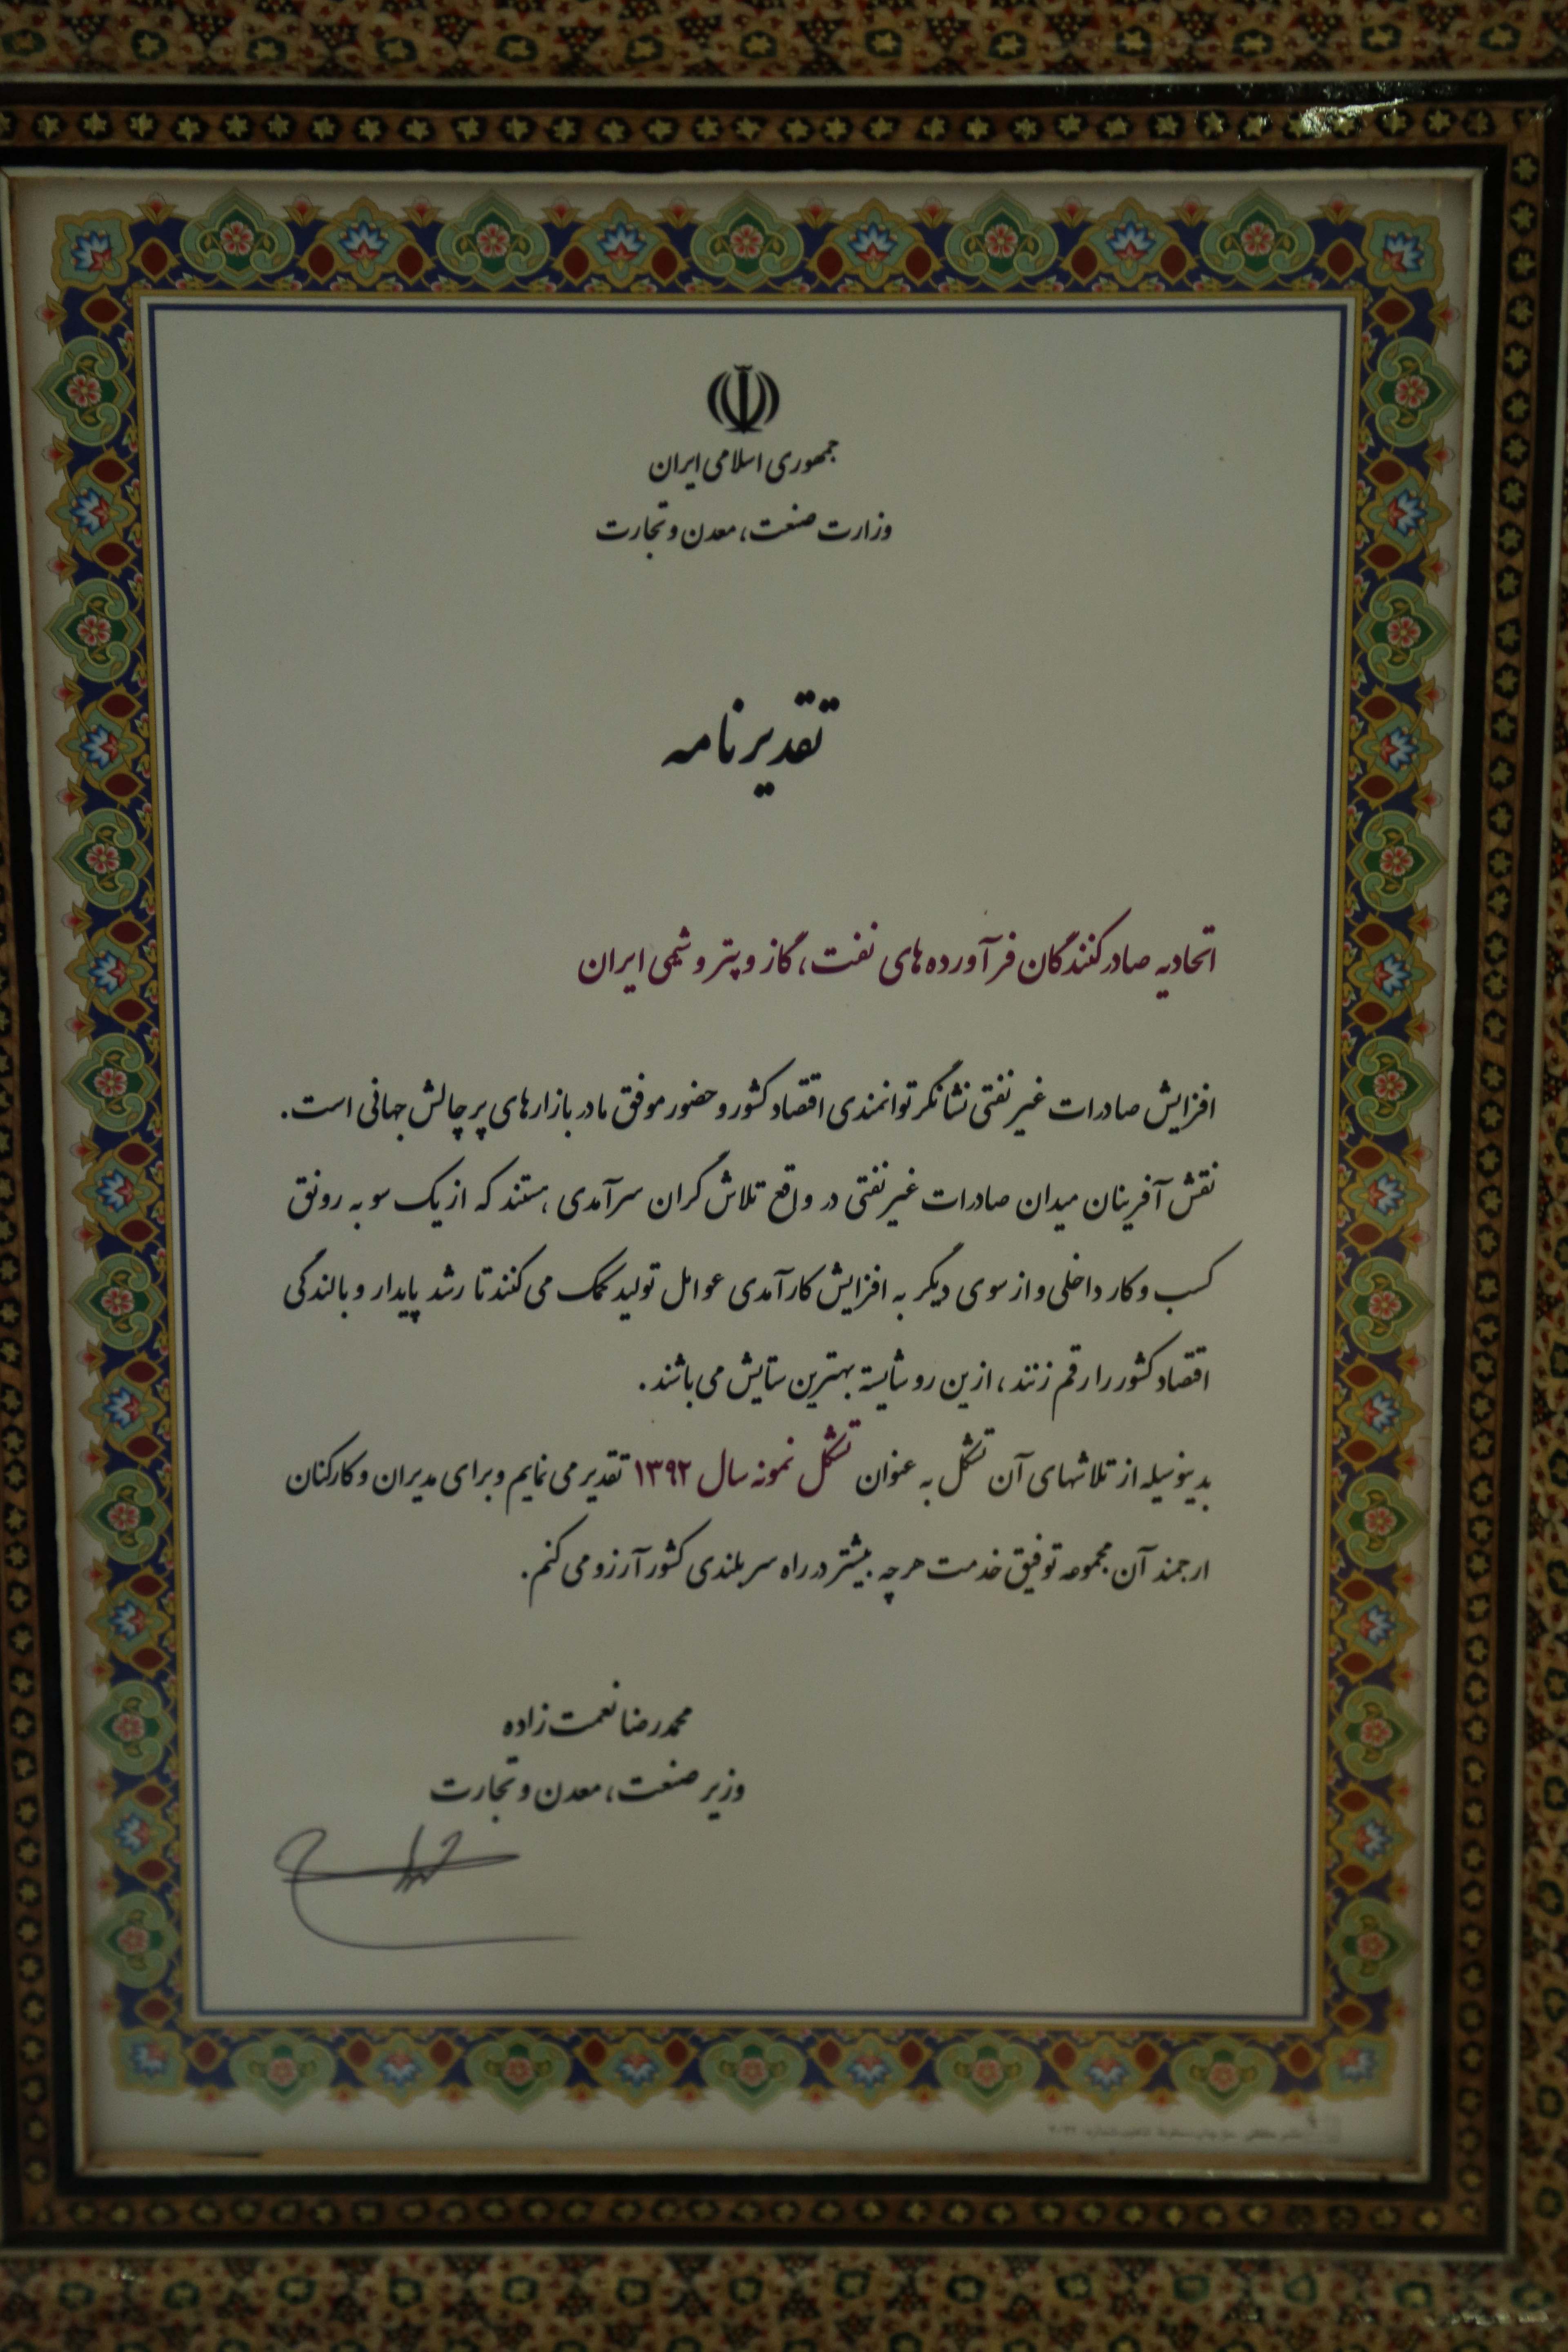 جمهوری اسلامی ایران
وزارت صنعت، معدن و تجارت
تقدیرنامه
اتحادیه صادرکنندگان فرآورده های نفت، گاز و پتروشیمی ایران
افزایش صادرات غیرنفتی نشانگر توانمندی اقتصاد کشور و حضور موفق ما در بازارهای پر چالش جهانی است.
نقش آفرینان میدان صادرات غیرنفتی در واقع تلاش گران سرآمدی هستند که از یک سو به رونق
کسب و کار داخلی و از سوی دیگر به افزایش کارآمدی عوامل تولید کمک می کنند تا رشد پایدار و بالندگی
اقتصاد کشور را رقم زنند، ازین رو شایسته بهترین ستایش می باشند.
بدینوسیله از تلاشهای آن تشکل به عنوان تشکل نمونه سال ۱۳۹۲ تقدیر می نمایم و برای مدیران و کارکنان
ارجمند آن مجموعه توفیق خدمت هر چه بیشتر در راه سربلندی کشور آرزو می کنم.
محمدرضا نعمت زاده
وزیر صنعت، معدن و تجارت